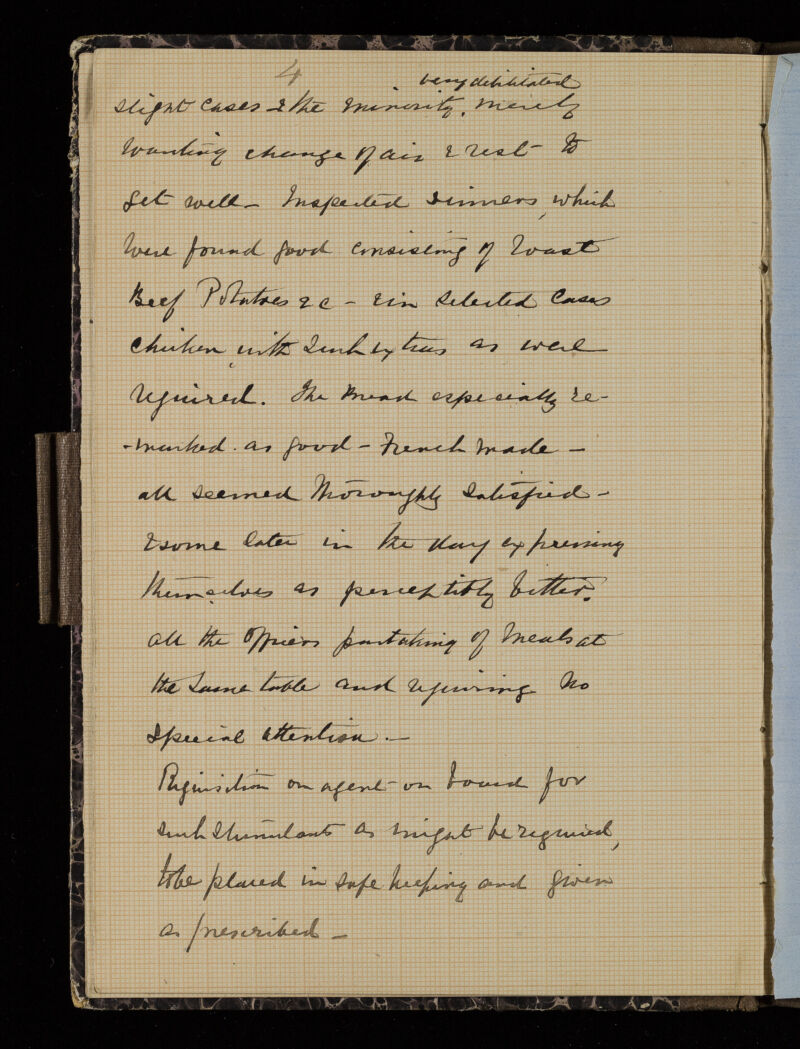 4
very debilitated
slight cases & the minority, merely
wanting change of air & rest to
get well - Inspected dinners, which
were found good consisting of Roast
Beef Potatoes &c - & in selected cases
chicken, with such extras as were
required. The Bread especially re-
-marked as good - French made -
all seemed thoroughly satisfied -
& some later in the day expressing
themselves as perceptibly better.
all the officers partaking of meals at
the same table and requiring no
special attention. -
Requisition on agent on board for
such stimulants as might be required,
to be placed in safe keeping and given
as prescribed -